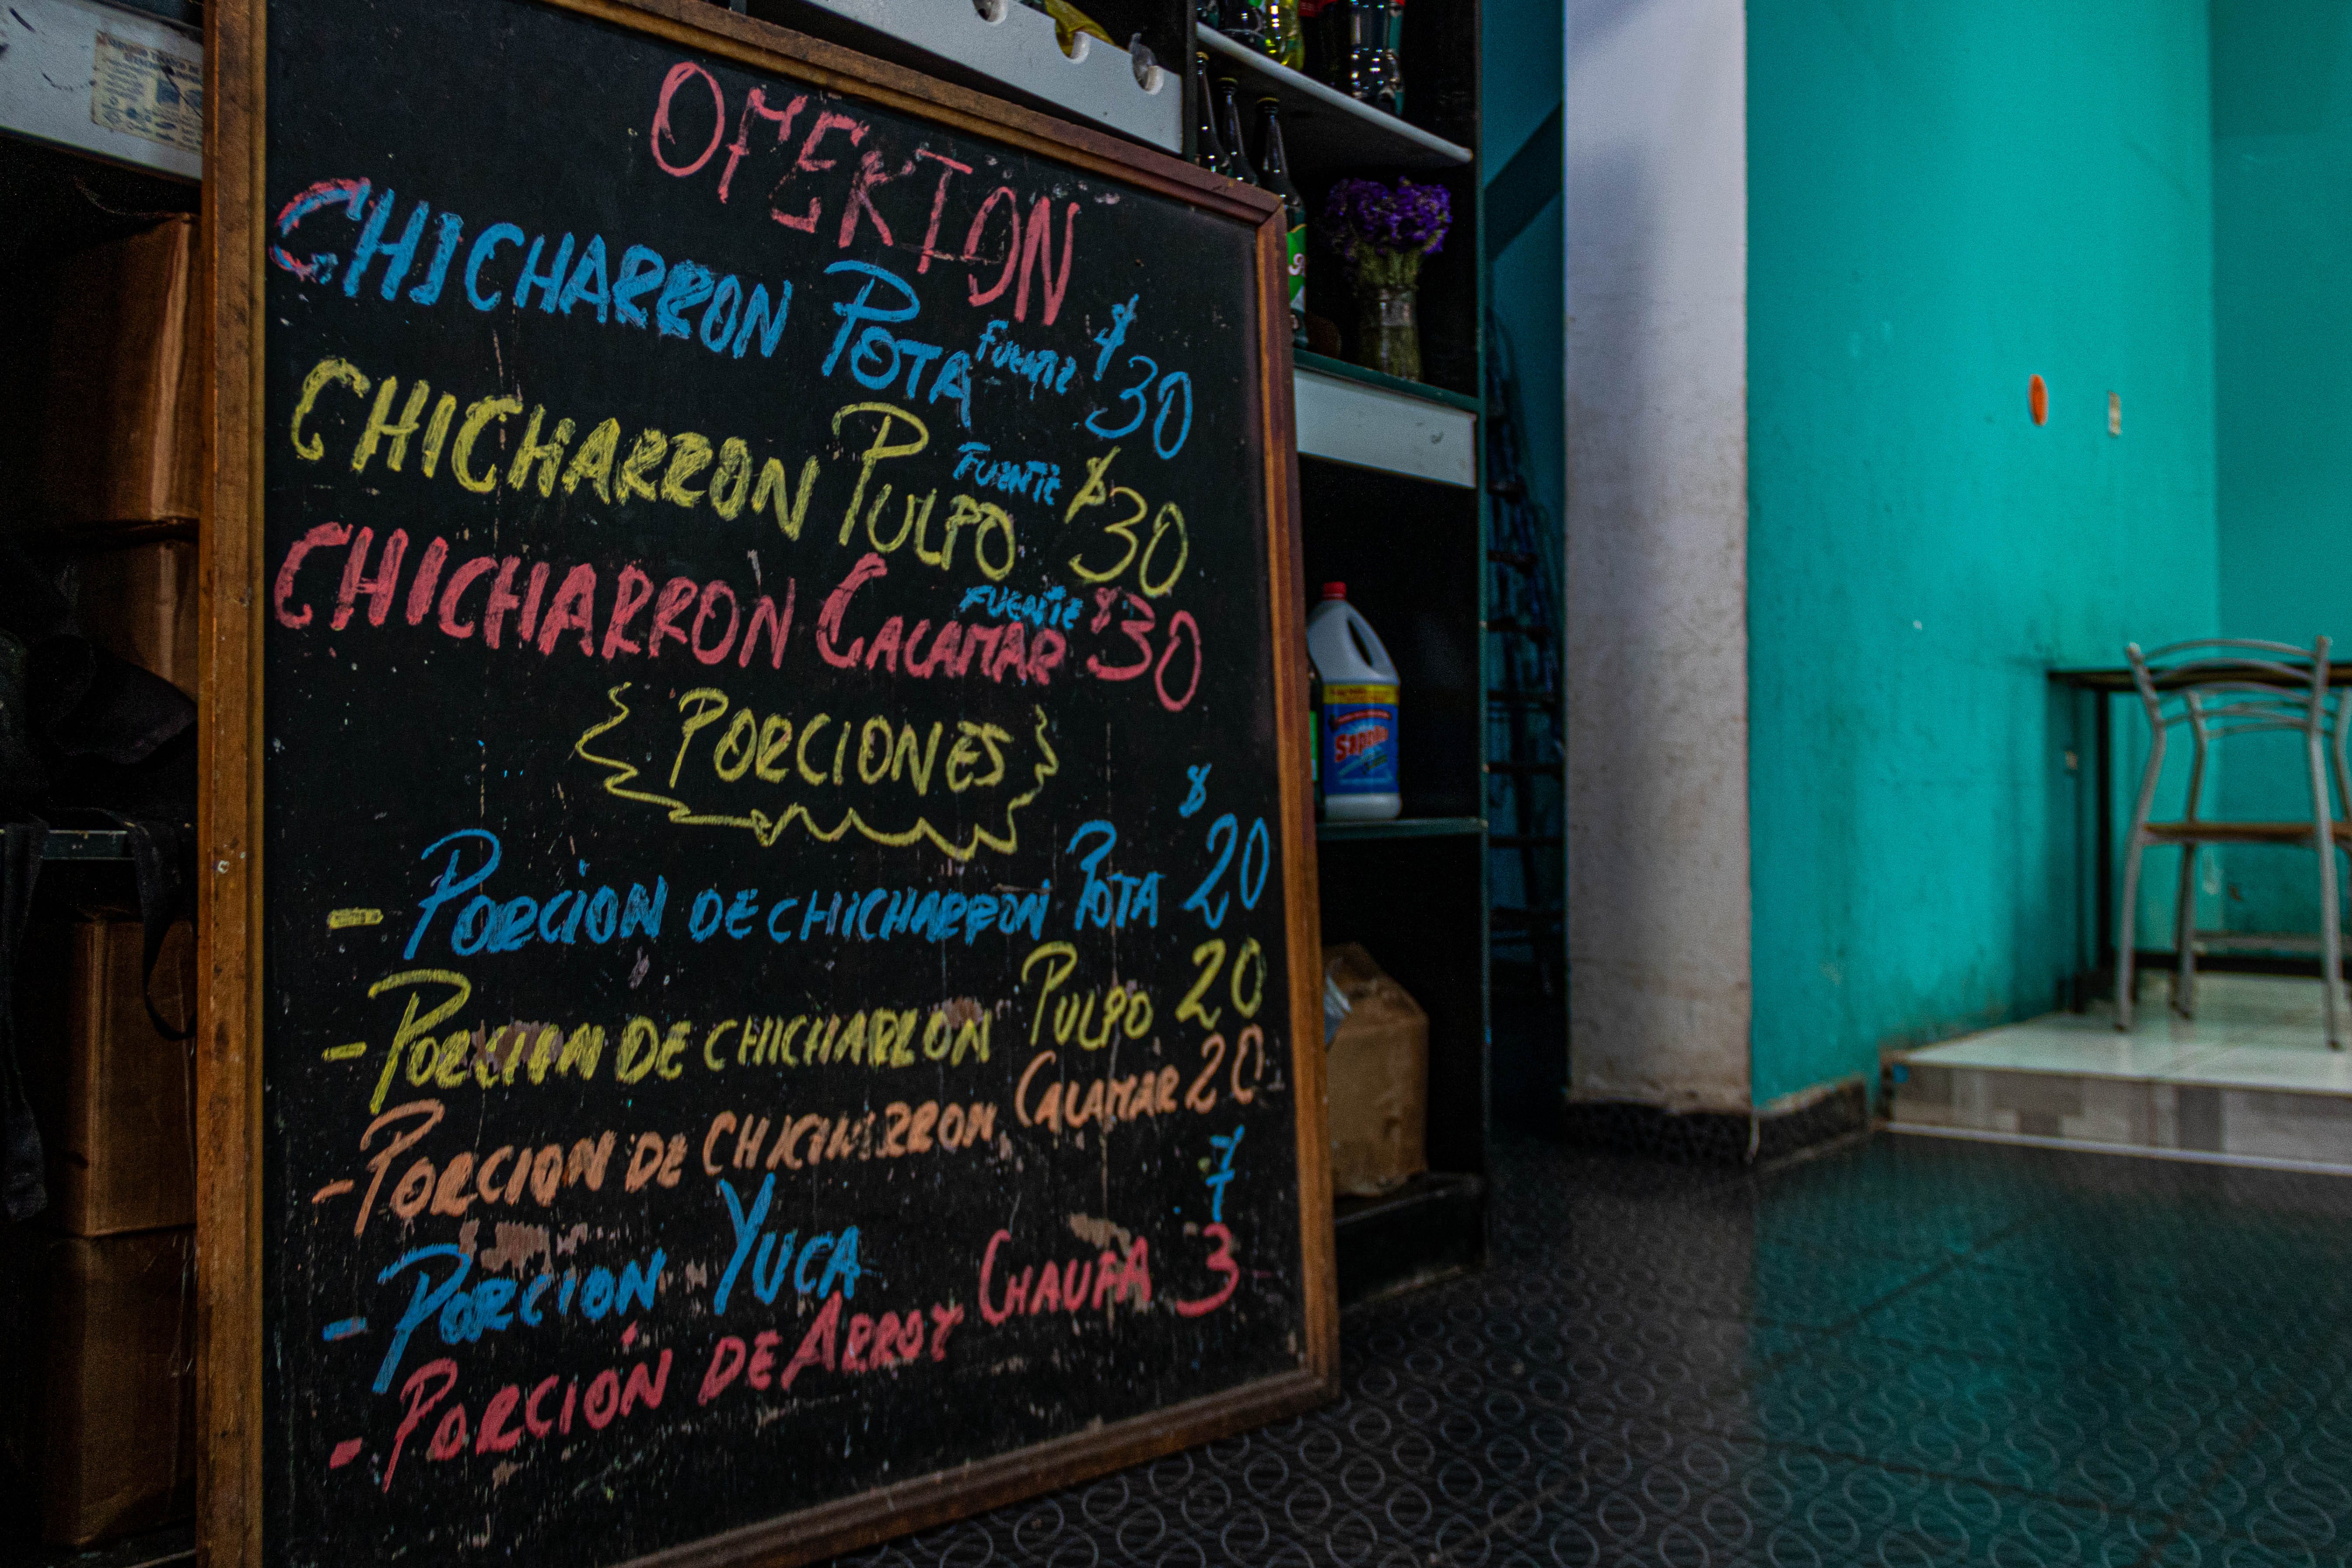 OFERTON
CHICHARRON POTA FUENTE $30
CHICHARRON PULPO FUENTE $30
CHICHARRON CALAMAR FUENTE $30
PORCIONES
- PORCION DE CHICHARRON POTA $ 20
- PORCION DE CHICHARRON PULPO 20
- PORCION DE CHICHARRON CALAMAR 20
- PORCION YUCA 7
- PORCIÓN DE ARROY CHAUFA 3
Sapolio